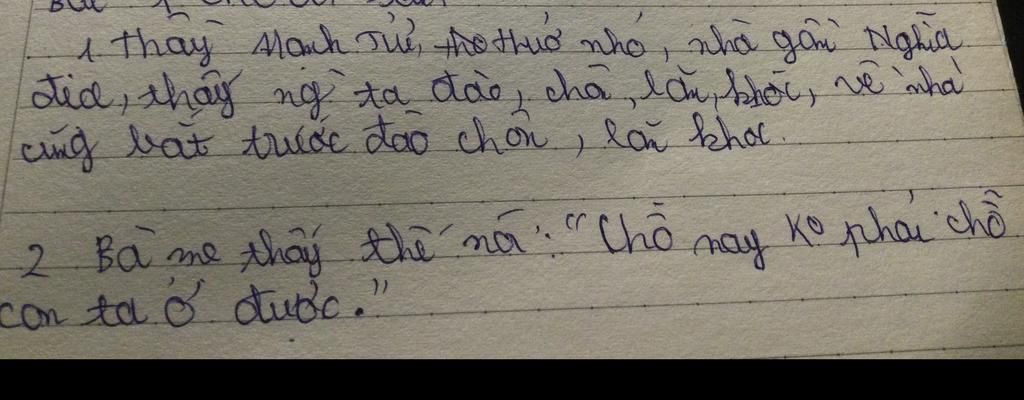 1 thầy Mạnh Tử, thuở nhỏ, nhà gần Nghĩa
địa, thấy ng ta đào, chôn, lăn, khóc, về nhà
cũng bắt trước đào chôn, lăn khóc.
2 Bà mẹ thấy thế nói: "Chỗ này ko phải chỗ
con ta ở được."